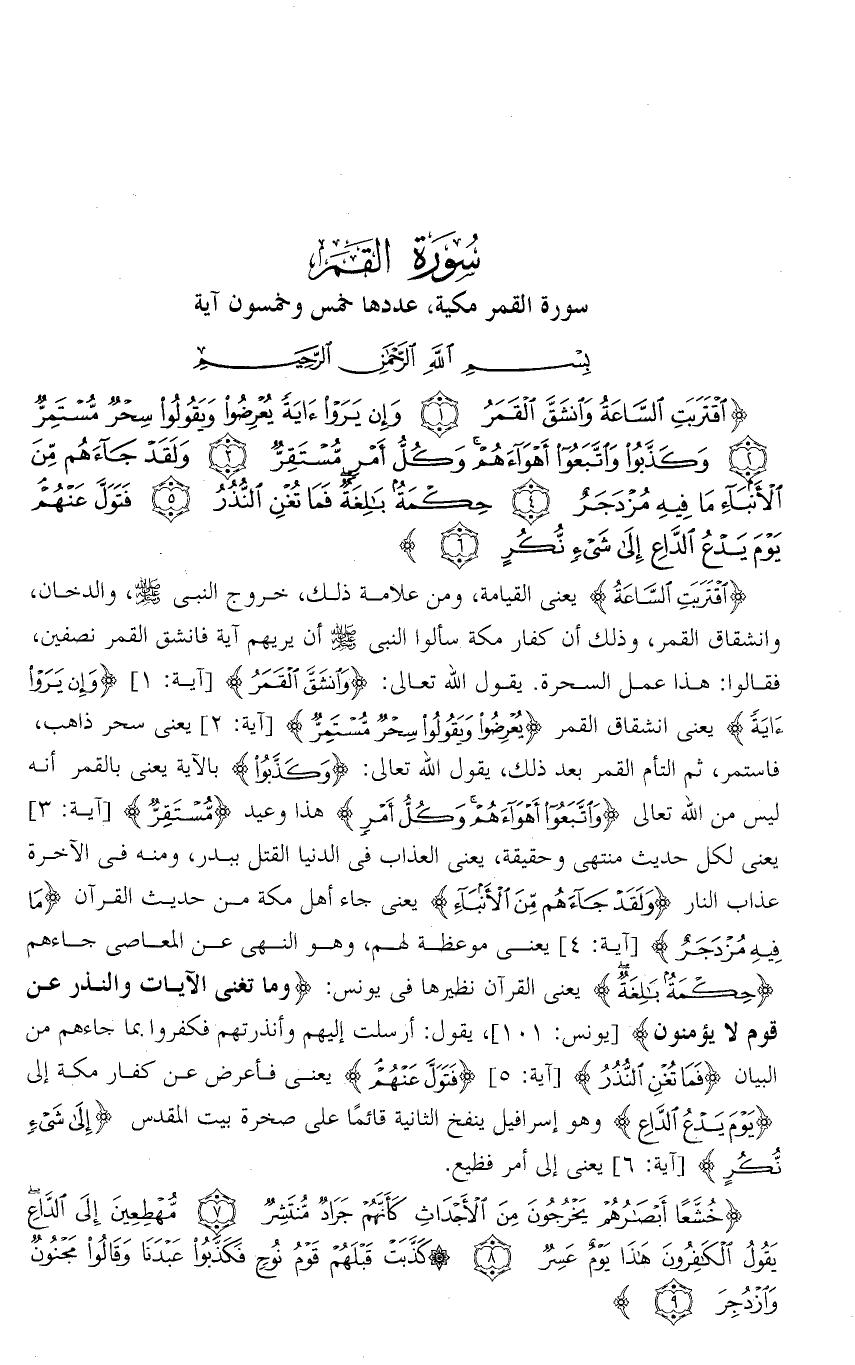 سُورَةُ القَمَرِ
سورة القمر مكية، عددها خمس وخمسون آية
بِسْمِ ٱللَّهِ ٱلرَّحْمَٰنِ ٱلرَّحِيمِ
﴿ٱقْتَرَبَتِ ٱلسَّاعَةُ وَٱنشَقَّ ٱلْقَمَرُ ۝١ وَإِن يَرَوْا۟ ءَايَةً يُعْرِضُوا۟ وَيَقُولُوا۟ سِحْرٌ مُّسْتَمِرٌّ
۝٢ وَكَذَّبُوا۟ وَٱتَّبَعُوٓا۟ أَهْوَآءَهُمْ ۚ وَكُلُّ أَمْرٍ مُّسْتَقِرٌّ ۝٣ وَلَقَدْ جَآءَهُم مِّنَ
ٱلْأَنۢبَآءِ مَا فِيهِ مُزْدَجَرٌ ۝٤ حِكْمَةٌۢ بَٰلِغَةٌ ۖ فَمَا تُغْنِ ٱلنُّذُرُ ۝٥ فَتَوَلَّ عَنْهُمْ ۘ
يَوْمَ يَدْعُ ٱلدَّاعِ إِلَىٰ شَىْءٍ نُّكُرٍ ۝٦﴾
﴿ٱقْتَرَبَتِ ٱلسَّاعَةُ﴾ يعنى القيامة، ومن علامة ذلك، خروج النبى ﷺ، والدخان،
وانشقاق القمر، وذلك أن كفار مكة سألوا النبى ﷺ أن يريهم آية فانشق القمر نصفين،
فقالوا: هذا عمل السحرة. يقول الله تعالى: ﴿وَٱنشَقَّ ٱلْقَمَرُ﴾ [آية: ١] ﴿وَإِن يَرَوْا۟
ءَايَةً﴾ يعنى انشقاق القمر ﴿يُعْرِضُوا۟ وَيَقُولُوا۟ سِحْرٌ مُّسْتَمِرٌّ﴾ [آية: ٢] يعنى سحر ذاهب،
فاستمر، ثم التأم القمر بعد ذلك، يقول الله تعالى: ﴿وَكَذَّبُوا۟﴾ بالآية يعنى بالقمر أنه
ليس من الله تعالى ﴿وَٱتَّبَعُوٓا۟ أَهْوَآءَهُمْ ۚ وَكُلُّ أَمْرٍ﴾ هذا وعيد ﴿مُّسْتَقِرٌّ﴾ [آية: ٣]
يعنى لكل حديث منتهى وحقيقة، يعنى العذاب فى الدنيا القتل ببدر، ومنه فى الآخرة
عذاب النار ﴿وَلَقَدْ جَآءَهُم مِّنَ ٱلْأَنۢبَآءِ﴾ يعنى جاء أهل مكة من حديث القرآن ﴿مَا
فِيهِ مُزْدَجَرٌ﴾ [آية: ٤] يعنى موعظة لهم، وهو النهى عن المعاصى جاءهم
﴿حِكْمَةٌۢ بَٰلِغَةٌ ۖ﴾ يعنى القرآن نظيرها فى يونس: ﴿وما تغنى الآيات والنذر عن
قوم لا يؤمنون﴾ [يونس: ١٠١]، يقول: أرسلت إليهم وأنذرتهم فكفروا بما جاءهم من
البيان ﴿فَمَا تُغْنِ ٱلنُّذُرُ﴾ [آية: ٥] ﴿فَتَوَلَّ عَنْهُمْ﴾ يعنى فأعرض عن كفار مكة إلى
﴿يَوْمَ يَدْعُ ٱلدَّاعِ﴾ وهو إسرافيل ينفخ الثانية قائمًا على صخرة بيت المقدس ﴿إِلَىٰ شَىْءٍ
نُّكُرٍ﴾ [آية: ٦] يعنى إلى أمر فظيع.
﴿خُشَّعًا أَبْصَٰرُهُمْ يَخْرُجُونَ مِنَ ٱلْأَجْدَاثِ كَأَنَّهُمْ جَرَادٌ مُّنتَشِرٌ ۝٧ مُّهْطِعِينَ إِلَى ٱلدَّاعِ ۖ
يَقُولُ ٱلْكَٰفِرُونَ هَٰذَا يَوْمٌ عَسِرٌ ۝٨ ۞ كَذَّبَتْ قَبْلَهُمْ قَوْمُ نُوحٍ فَكَذَّبُوا۟ عَبْدَنَا وَقَالُوا۟ مَجْنُونٌ
وَٱزْدُجِرَ ۝٩﴾